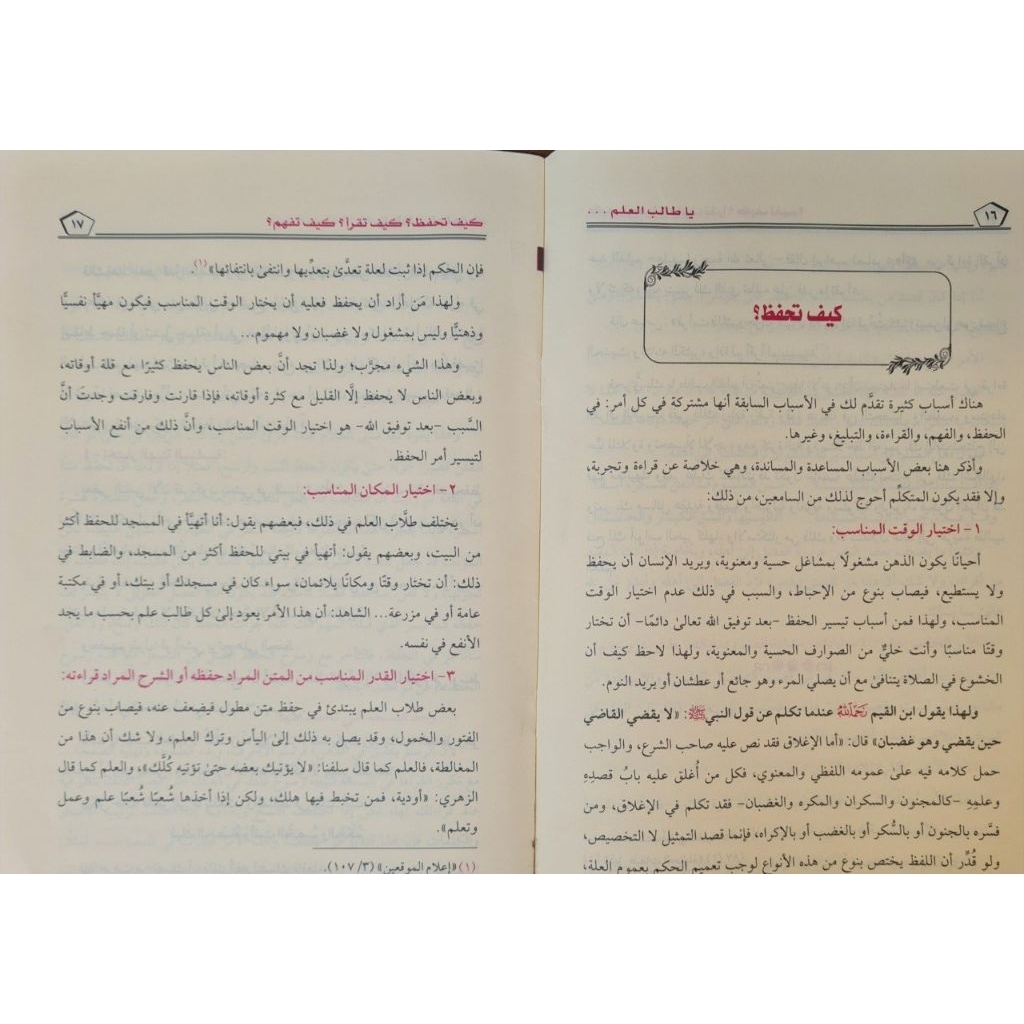 ١٦
يا طالب العلم ...
كيف تحفظ؟
هناك أسباب كثيرة تقدَّم لك في الأسباب السابقة أنها مشتركة في كل أمر: في
الحفظ، والفهم، والقراءة، والتبليغ، وغيرها.
وأذكر هنا بعض الأسباب المساعدة والمساندة، وهي خلاصة عن قراءة وتجربة،
وإلا فقد يكون المتكلِّم أحوج لذلك من السامعين، من ذلك:
١- اختيار الوقت المناسب:
أحيانًا يكون الذهن مشغولًا بمشاغل حسية ومعنوية، ويريد الإنسان أن يحفظ
ولا يستطيع، فيصاب بنوع من الإحباط، والسبب في ذلك عدم اختيار الوقت
المناسب، ولهذا فمن أسباب تيسير الحفظ -بعد توفيق الله تعالىٰ دائمًا- أن تختار
وقتًا مناسبًا وأنت خليٌّ من الصوارف الحسية والمعنوية، ولهذا لاحظ كيف أن
الخشوع في الصلاة يتنافىٰ مع أن يصلي المرء وهو جائع أو عطشان أو يريد النوم.
ولهذا يقول ابن القيم رَحِمَهُ اللَّهُ عندما تكلم عن قول النبي ﷺ: «لا يقضي القاضي
حين يقضي وهو غضبان» قال: «أما الإغلاق فقد نص عليه صاحب الشرع، والواجب
حمل كلامه فيه علىٰ عمومه اللفظي والمعنوي، فكل من أُغلق عليه بابُ قصدِهِ
وعلمِهِ -كالمجنون والسكران والمكره والغضبان- فقد تكلم في الإغلاق، ومن
فسَّره بالجنون أو بالسُّكر أو بالغضب أو بالإكراه، فإنما قصد التمثيل لا التخصيص،
ولو قُدِّر أن اللفظ يختص بنوع من هذه الأنواع لوجب تعميم الحكم بعموم العلة،
كيف تحفظ؟ كيف تقرأ؟ كيف تفهم؟
١٧
فإن الحكم إذا ثبت لعلة تعدَّىٰ بتعدِّيها وانتفىٰ بانتفائها»(١).
ولهذا مَن أراد أن يحفظ فعليه أن يختار الوقت المناسب فيكون مهيَّأ نفسيًّا
وذهنيًّا وليس بمشغول ولا غضبان ولا مهموم...
وهذا الشيء مجرَّب؛ ولذا تجد أنَّ بعض الناس يحفظ كثيرًا مع قلة أوقاته،
وبعض الناس لا يحفظ إلَّا القليل مع كثرة أوقاته، فإذا قارنت وفارقت وجدتَ أنَّ
السَّبب -بعد توفيق الله- هو اختيار الوقت المناسب، وأنَّ ذلك من أنفع الأسباب
لتيسير أمر الحفظ.
٢- اختيار المكان المناسب:
يختلف طلَّاب العلم في ذلك، فبعضهم يقول: أنا أتهيَّأ في المسجد للحفظ أكثر
من البيت، وبعضهم يقول: أتهيأ في بيتي للحفظ أكثر من المسجد، والضابط في
ذلك: أن تختار وقتًا ومكانًا يلائمان، سواء كان في مسجدك أو بيتك، أو في مكتبة
عامة أو في مزرعة... الشاهد: أن هذا الأمر يعود إلىٰ كل طالب علم بحسب ما يجد
الأنفع في نفسه.
٣- اختيار القدر المناسب من المتن المراد حفظه أو الشرح المراد قراءته:
بعض طلاب العلم يبتدئ في حفظ متن مطول فيضعف عنه، فيصاب بنوع من
الفتور والخمول، وقد يصل به ذلك إلىٰ اليأس وترك العلم، ولا شك أن هذا من
المغالطة، فالعلم كما قال سلفنا: «لا يؤتيك بعضه حتىٰ تؤتيه كُلَّك»، والعلم كما قال
الزهري: «أودية، فمن تخبط فيها هلك، ولكن إذا أخذها شُعبًا شُعبًا علم وعمل
وتعلم».
(١) «إعلام الموقعين» (٣/ ١٠٧).